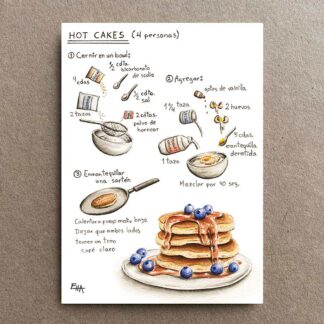 HOT CAKES (4 personas)
① Cernir en un bowl:
4 cdas
½ cdta.
bicarbonato
de sodio
½ cdta.
sal
2 tazas
2 cditas.
polvo de
hornear
② Agregar:
gotas de vainilla
1¼ taza
2 huevos
5 cdas.
mantequilla
derretida
1 taza
Mezclar por 40 seg.
③ Enmantequillar
una sartén
Calentar a fuego medio bajo
Dejar que ambos lados
tomen un tono
café claro